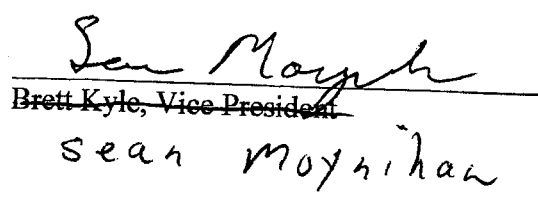 Sean Moynihan
Brett Kyle, Vice President
sean moynihan